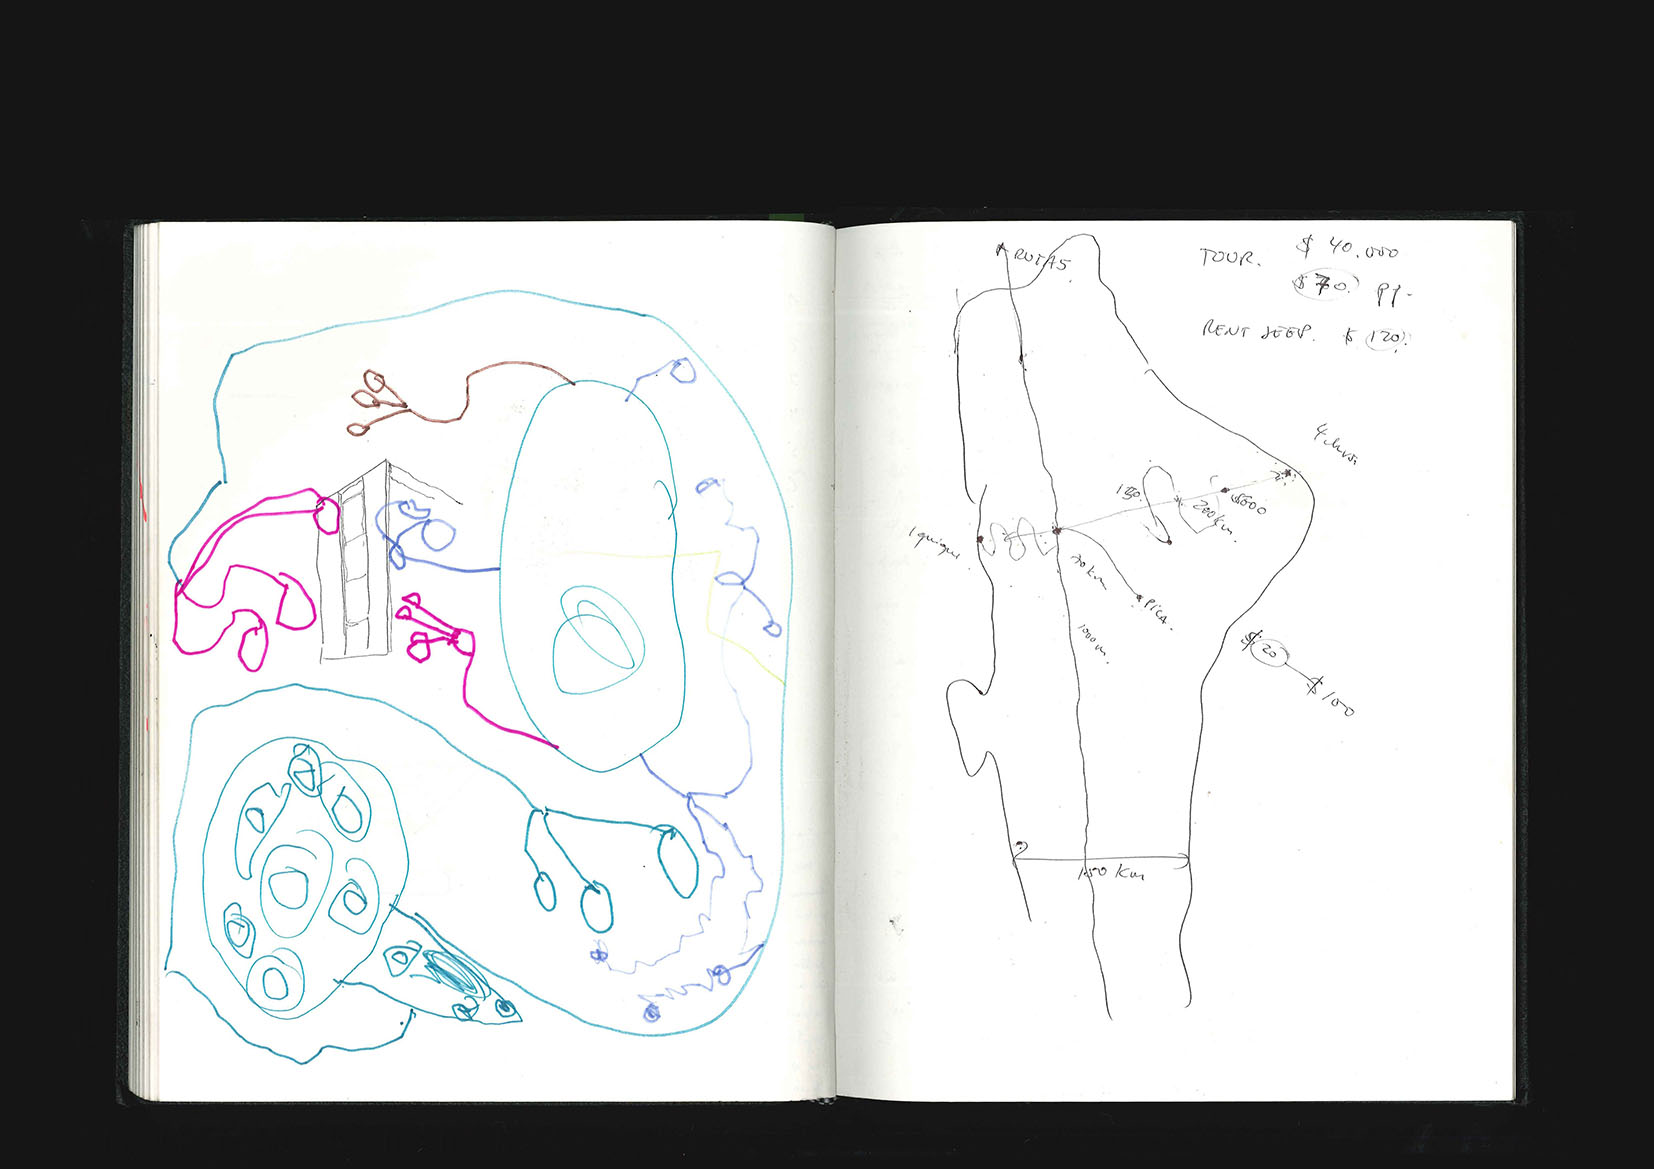 RUTA 5.
TOUR. $ 40.000
$ 70. PP.
RENT JEEP. $ 120.
4 hrs.
130.
200 Km.
5000
Iquique
70 km
PICA.
1000 m.
$ 20
$ 100
150 Km